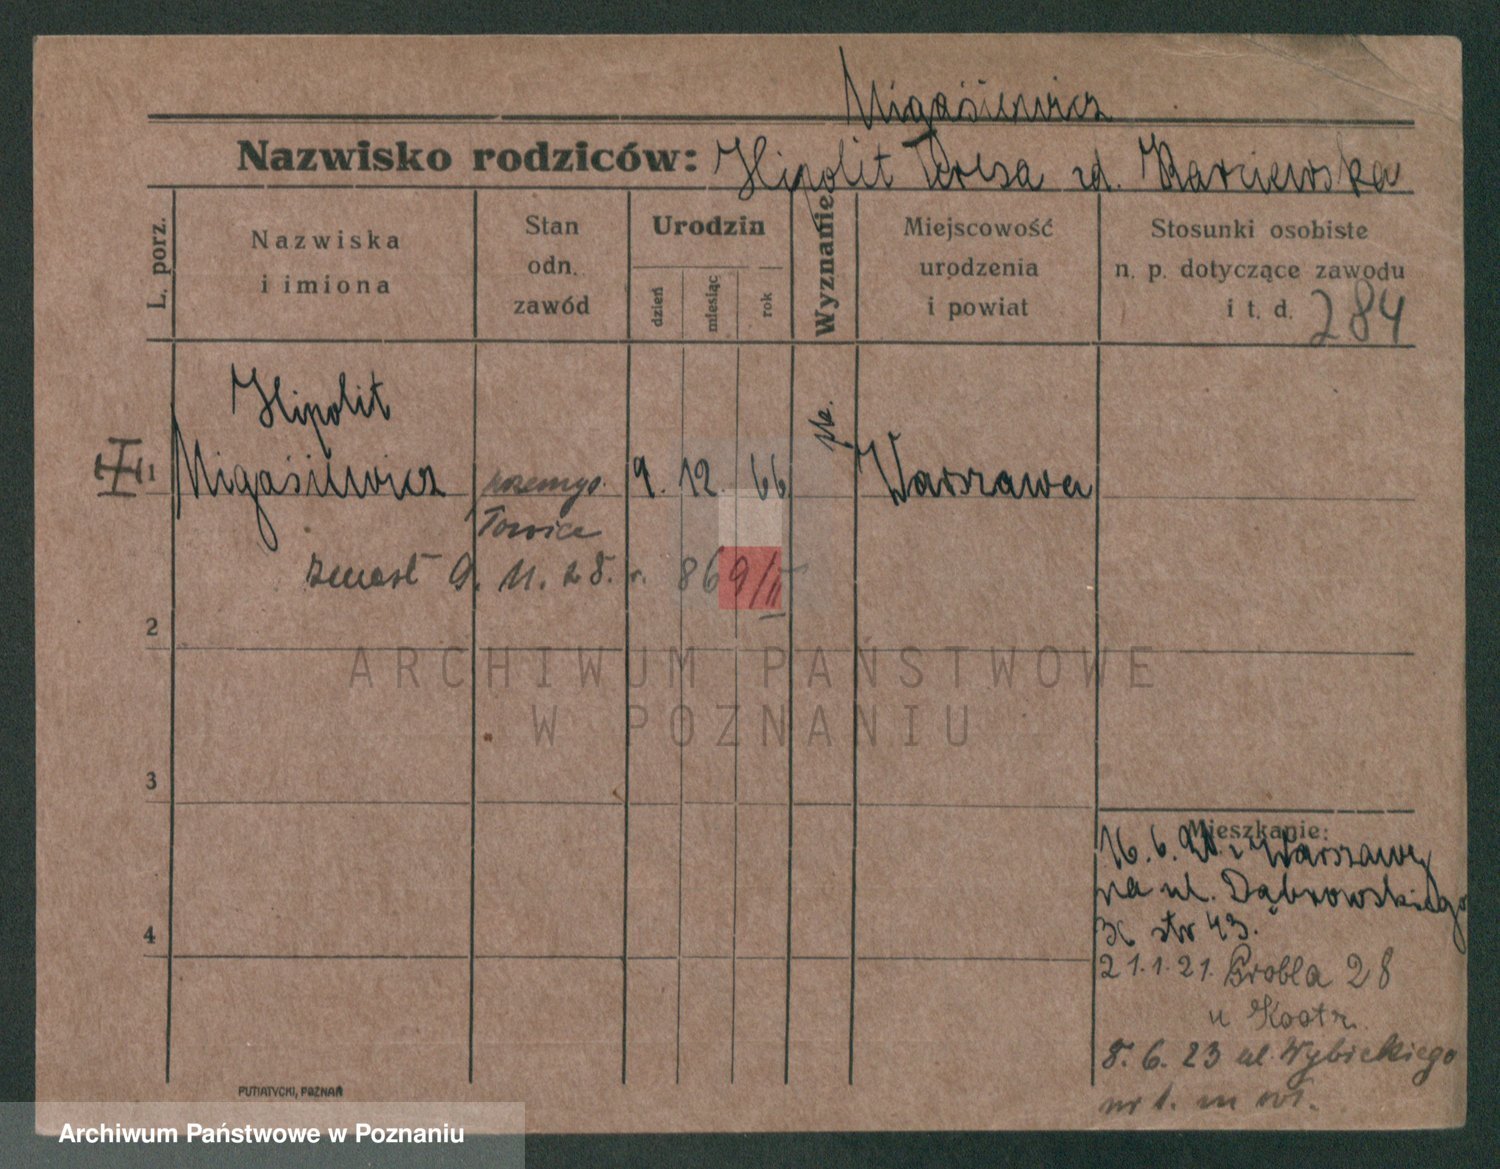 Migaśiewicz
Nazwisko rodziców: Hipolit Teresa zd. Karciewska
L. porz.
Nazwiska
i imiona
Stan
odn.
zawód
Urodzin
dzień
miesiąc
rok
Wyznanie
Miejscowość
urodzenia
i powiat
Stosunki osobiste
n. p. dotyczące zawodu
i t. d. 284
Hipolit
1 Migaśiewicz przemysłowiec 9. 12. 66 Warszawa
zmarł 9. 11. 28. r. 869/II
2
ARCHIWUM PAŃSTWOWE
W POZNANIU
3
Mieszkanie:
16. 6. 20. z Warszawy
na ul. Dąbrowskiego
36 str 43.
4
21.1.21. Grobla 28
u Kostr.
8. 6. 23 ul. Wybickiego
nr 1. m wł.
PUTIATYCKI, POZNAŃ
Archiwum Państwowe w Poznaniu